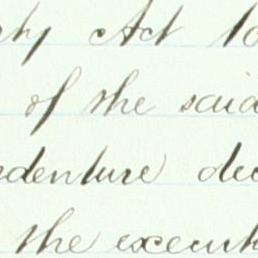 rty Act 
of the said
denture dec
the execut